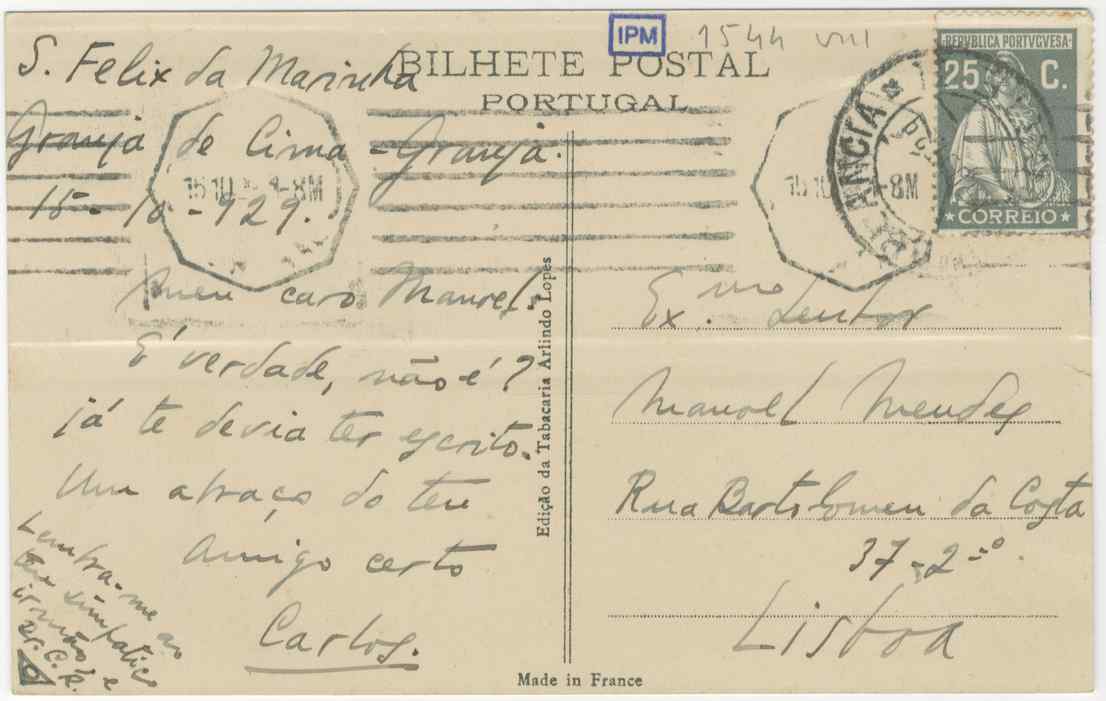 IPM
1544 VIII
BILHETE POSTAL
PORTUGAL
S. Felix da Marinha
Granja de Cima - Granja.
15 - 10 - 929.
Meu caro Manoel.
É verdade, não é?
já te devia ter escrito.
Um abraço do teu
Amigo certo
Carlos.
Lembra-me ao
teu simpatico
irmão e
Edição da Tabacaria Arlindo Lopes
REPVBLICA PORTVGVESA
25 C.
CORREIO
15 10
-8M
15 10
-8M
Ex.mo Senhor
Manoel Mendes
Rua Bartolomeu da Costa
37-2-º.
Lisboa
Made in France